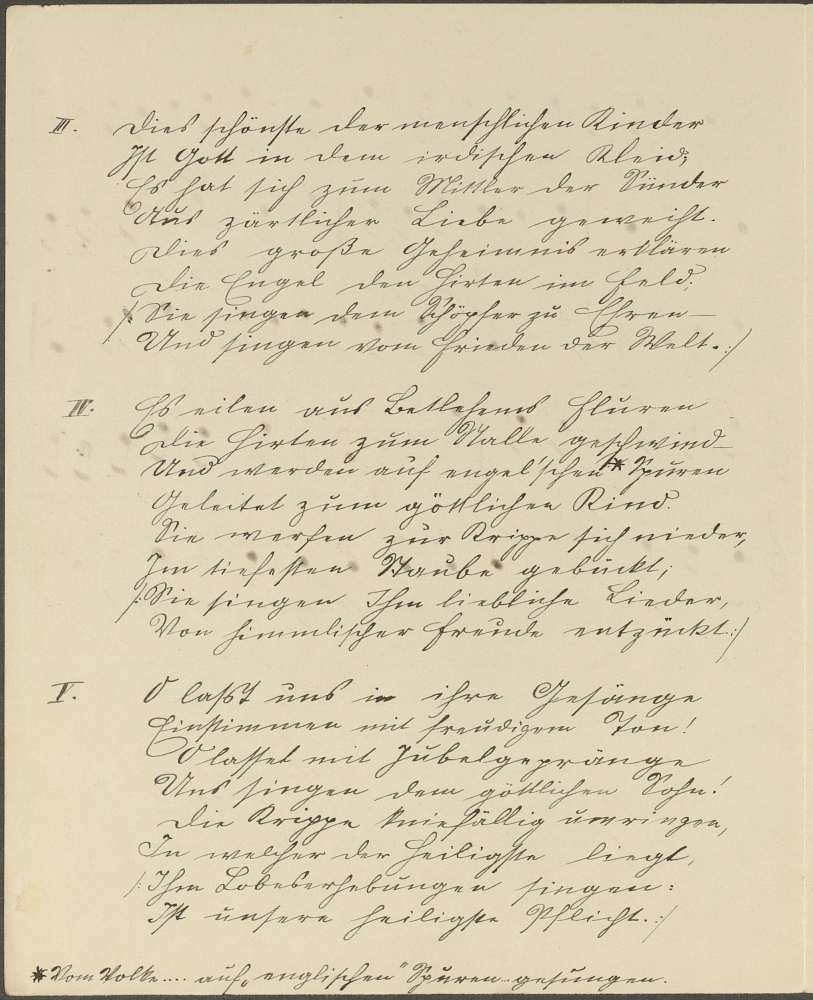 III. Dies schönste der menschlichen Kinder
Ist Gott in dem irdischen Kleid;
Es hat sich zum Mittler der Sünder
Aus zärtlicher Liebe geweiht.
Dies große Geheimnis erklären
Die Engel den Hirten im Feld;
/: Sie singen dem Schöpfer zu Ehren –
Und singen vom Frieden der Welt. :/
IV. Es eilen aus Betlehems Fluren
Die Hirten zum Stalle geschwind –
Und werden auf engel'schen * Spuren
Geleitet zum göttlichen Kind.
Sie werfen zur Krippe sich nieder,
Im tiefesten Staube gebückt;
/: Sie singen Ihm liebliche Lieder,
Von himmlischer Freude entzückt :/
V. O lasst uns in ihre Gesänge
Einstimmen mit freudigem Ton!
O lasset mit Jubelgepränge
Uns singen dem göttlichen Sohn!
Die Krippe kniefällig umringen,
In welcher der Heiligste liegt,
/: Ihm Lobeserhebungen singen:
Ist unsere heiligste Pflicht. :/
* Vom Volke .... auf „englischen" Spuren gesungen.